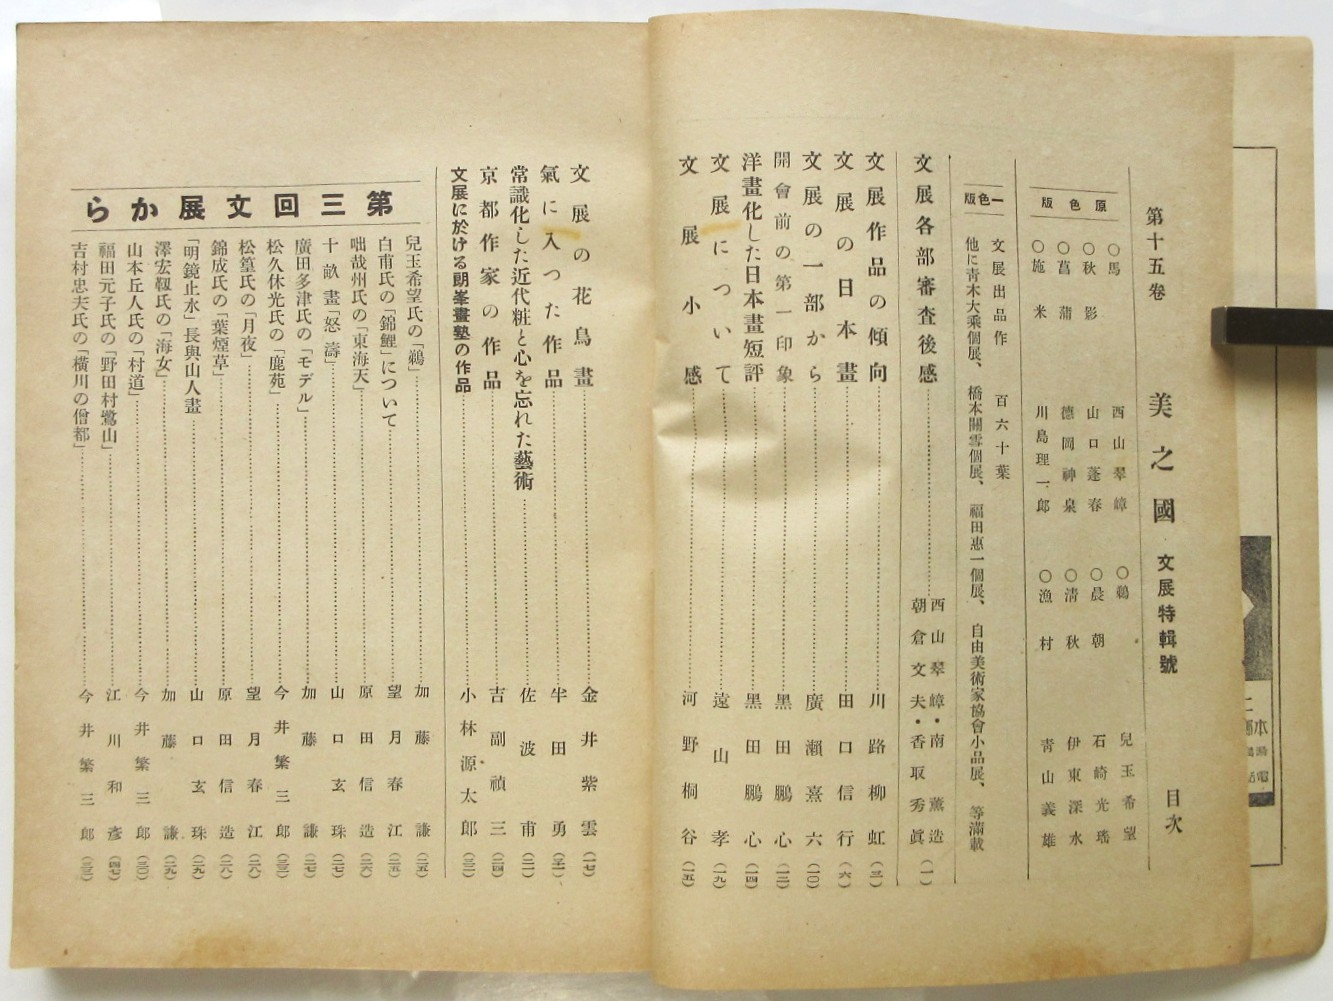 第十五卷 美之國 文展特輯號 目次
原色版
〇馬 西山翠嶂
〇鵜 兒玉希望
〇秋影 山口蓬春
〇晨朝 石崎光瑤
〇菖蒲 德岡神泉
〇清秋 伊東深水
〇施米 川島理一郎
〇漁村 靑山義雄
一色版
文展出品作 百六十葉
他に靑木大乘個展、橋本關雪個展、福田惠一個展、自由美術家協會小品展、等滿載
文展各部審査後感 西山翠嶂・南薰造 朝倉文夫・香取秀眞 (一)
文展作品の傾向 川路柳虹 (三)
文展の日本畫 田口信行 (六)
文展の一部から 廣瀨熹六 (一〇)
開會前の第一印象 黑田鵬心 (一三)
洋畫化した日本畫短評 黑田鵬心 (一四)
文展について 遠山孝 (一九)
文展小感 河野桐谷 (一五)
文展の花鳥畫 金井紫雲 (一七)
氣に入つた作品 半田勇
常識化した近代粧と心を忘れた藝術 佐波甫 (二一)
京都作家の作品 吉副禎三 (二四)
文展に於ける朗峯畫塾の作品 小林源太郎 (三三)
第三回文展から
兒玉希望氏の「鵜」 加藤謙 (二五)
白甫氏の「錦鯉」について 望月春江 (二五)
咄哉州氏の「東海天」 原田信造 (二六)
十畝畫「怒濤」 山口玄珠 (二七)
廣田多津氏の「モデル」 加藤謙 (二七)
松久休光氏の「鹿苑」 今井繁三郎
松篁氏の「月夜」 望月春江 (二八)
錦成氏の「葉煙草」 原田信造 (二八)
「明鏡止水」長與山人畫 山口玄珠 (二九)
澤宏靱氏の「海女」 加藤謙 (二九)
山本丘人氏の「村道」 今井繁三郎 (三〇)
福田元子氏の「野田村鷺山」 江川和彥 (四七)
吉村忠夫氏の「橫川の僧都」 今井繁三郎